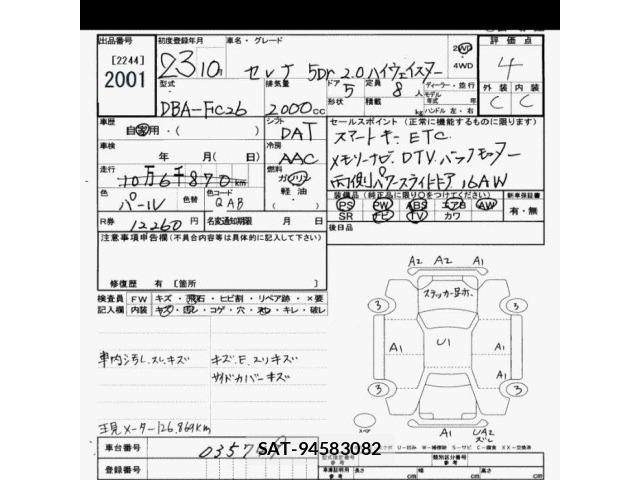 出品番号 初度登録年月 車名・グレード 評価点
[2244]
2001
23 10 セレナ 5Dr 2.0 ハイウェイスター
2WD・4WD
4
型式 排気量 ドア 定員 ディーラー・並行
DBA-FC26 2000cc 5 8人
形状 積載 kg ハンドル 左・右
外装 内装
C C
車歴 シフト セールスポイント (正常に機能するものに限ります)
自家用・( ) DAT スマートキー ETC
車検 冷房 メモリーナビ DTV バックモニター
年 月( 日) AAC 両側パワースライドドア 16AW
走行 燃料
10万6千870km ガソリン
軽油
色 色替 色コード
パール QAB
装備品 (純正品に限り○をつけてください) 新車保証書
PS PW ABS エアB AW 有・無
SR ナビ TV カワ
R券 12260円 名変通知期限 月 日 後日品
注意事項申告欄(不具合内容等は具体的に記入して下さい)
修復歴 有 [箇所 ]
検査員 FW キズ・飛石・ヒビ割・リペア跡・×要
記入欄 内装 キズ・汚れ・コゲ・穴・スレ・キレ・破レ
車内汚レ.スレ.キズ キズ.E.スリキズ
サイドカバーキズ
現メーター126,869km
A2 A2 A1
ステッカー足ホ.
3 3
A1 U1 A1
3 3
スペア A1 UA2
ズレ
車台番号
登録番号
SAT-94583082
型式指定番号 類別区分番号
参考 参考
長さ cm 幅 cm 高さ cm